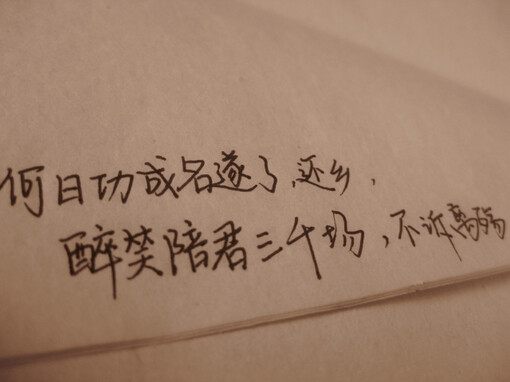 何日功成名遂了,还乡,
醉笑陪君三千场,不诉离殇